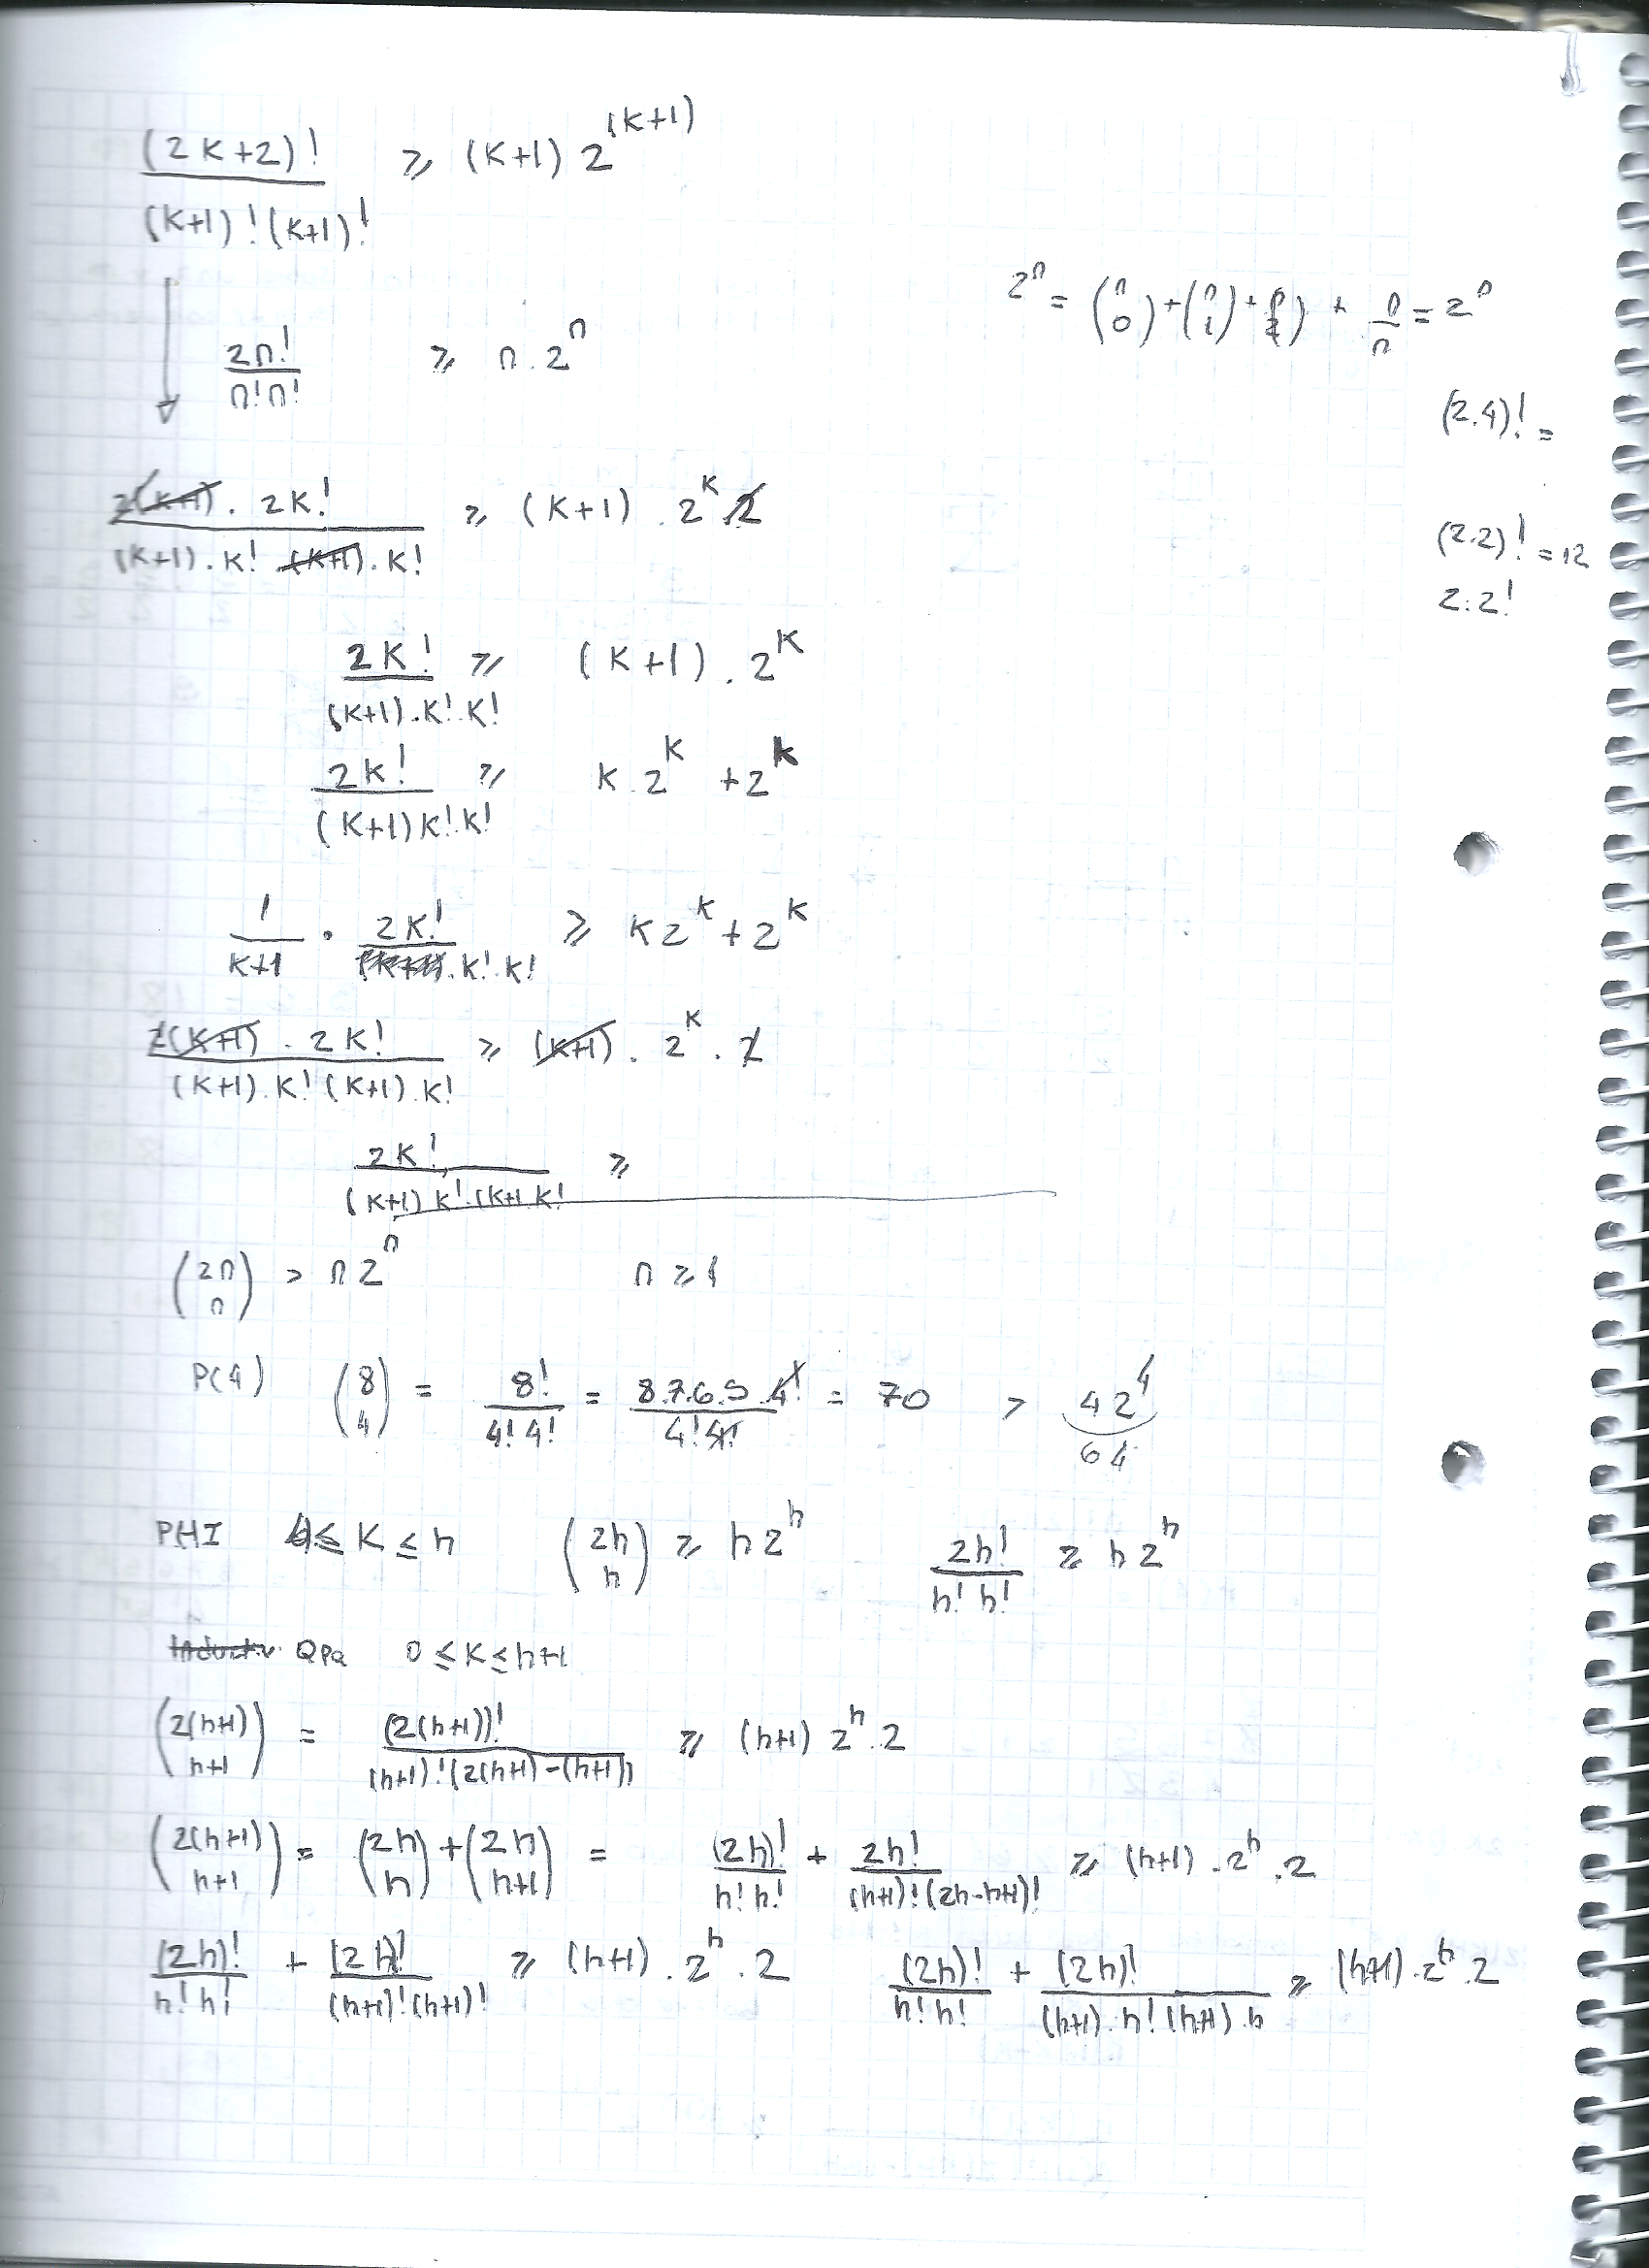 (2K+2)! / (K+1)!(K+1)! ⩾ (K+1) 2^(K+1)
2^n = (n 0) + (n 1) + (n 2) + n/n = 2^n
2n! / n!n! ⩾ n . 2^n
(2.4)! =
2(K+1) . 2K! / (K+1).K! (K+1).K! ⩾ (K+1) . 2^K 2
(2.2)! = 12
2.2!
2K! / (K+1).K!.K! ⩾ (K+1) . 2^K
2K! / (K+1)K!.K! ⩾ K.2^K + 2^K
1/K+1 . 2K! / (K+1).K!.K! ⩾ K2^K + 2^K
2(K+1) . 2K! / (K+1).K!(K+1).K! ⩾ (K+1) . 2^K . 2
2K! / (K+1)K!.(K+1 K! ⩾
(2n n) > n2^n n ⩾ 4
P(4) (8 4) = 8! / 4!4! = 8.7.6.5.4! / 4!4! = 70 > 42^4
64
PHI 4 ≤ K ≤ h (2h h) ⩾ h2^h 2h! / h!h! ⩾ h2^h
QPQ 0 ≤ K ≤ h+1
(2(h+1) h+1) = (2(h+1))! / (h+1)!(2(h+1)-(h+1)) ⩾ (h+1) 2^h . 2
(2(h+1) h+1) = (2h h) + (2h h+1) = (2h)! / h!h! + 2h! / (h+1)!(2h-h+1)! ⩾ (h+1) . 2^h . 2
(2h)! / h!h! + (2h)! / (h+1)!(h+1)! ⩾ (h+1) . 2^h . 2 (2h)! / h!h! + (2h)! / (h+1).h!(h+1).h ⩾ (h+1) . 2^h . 2